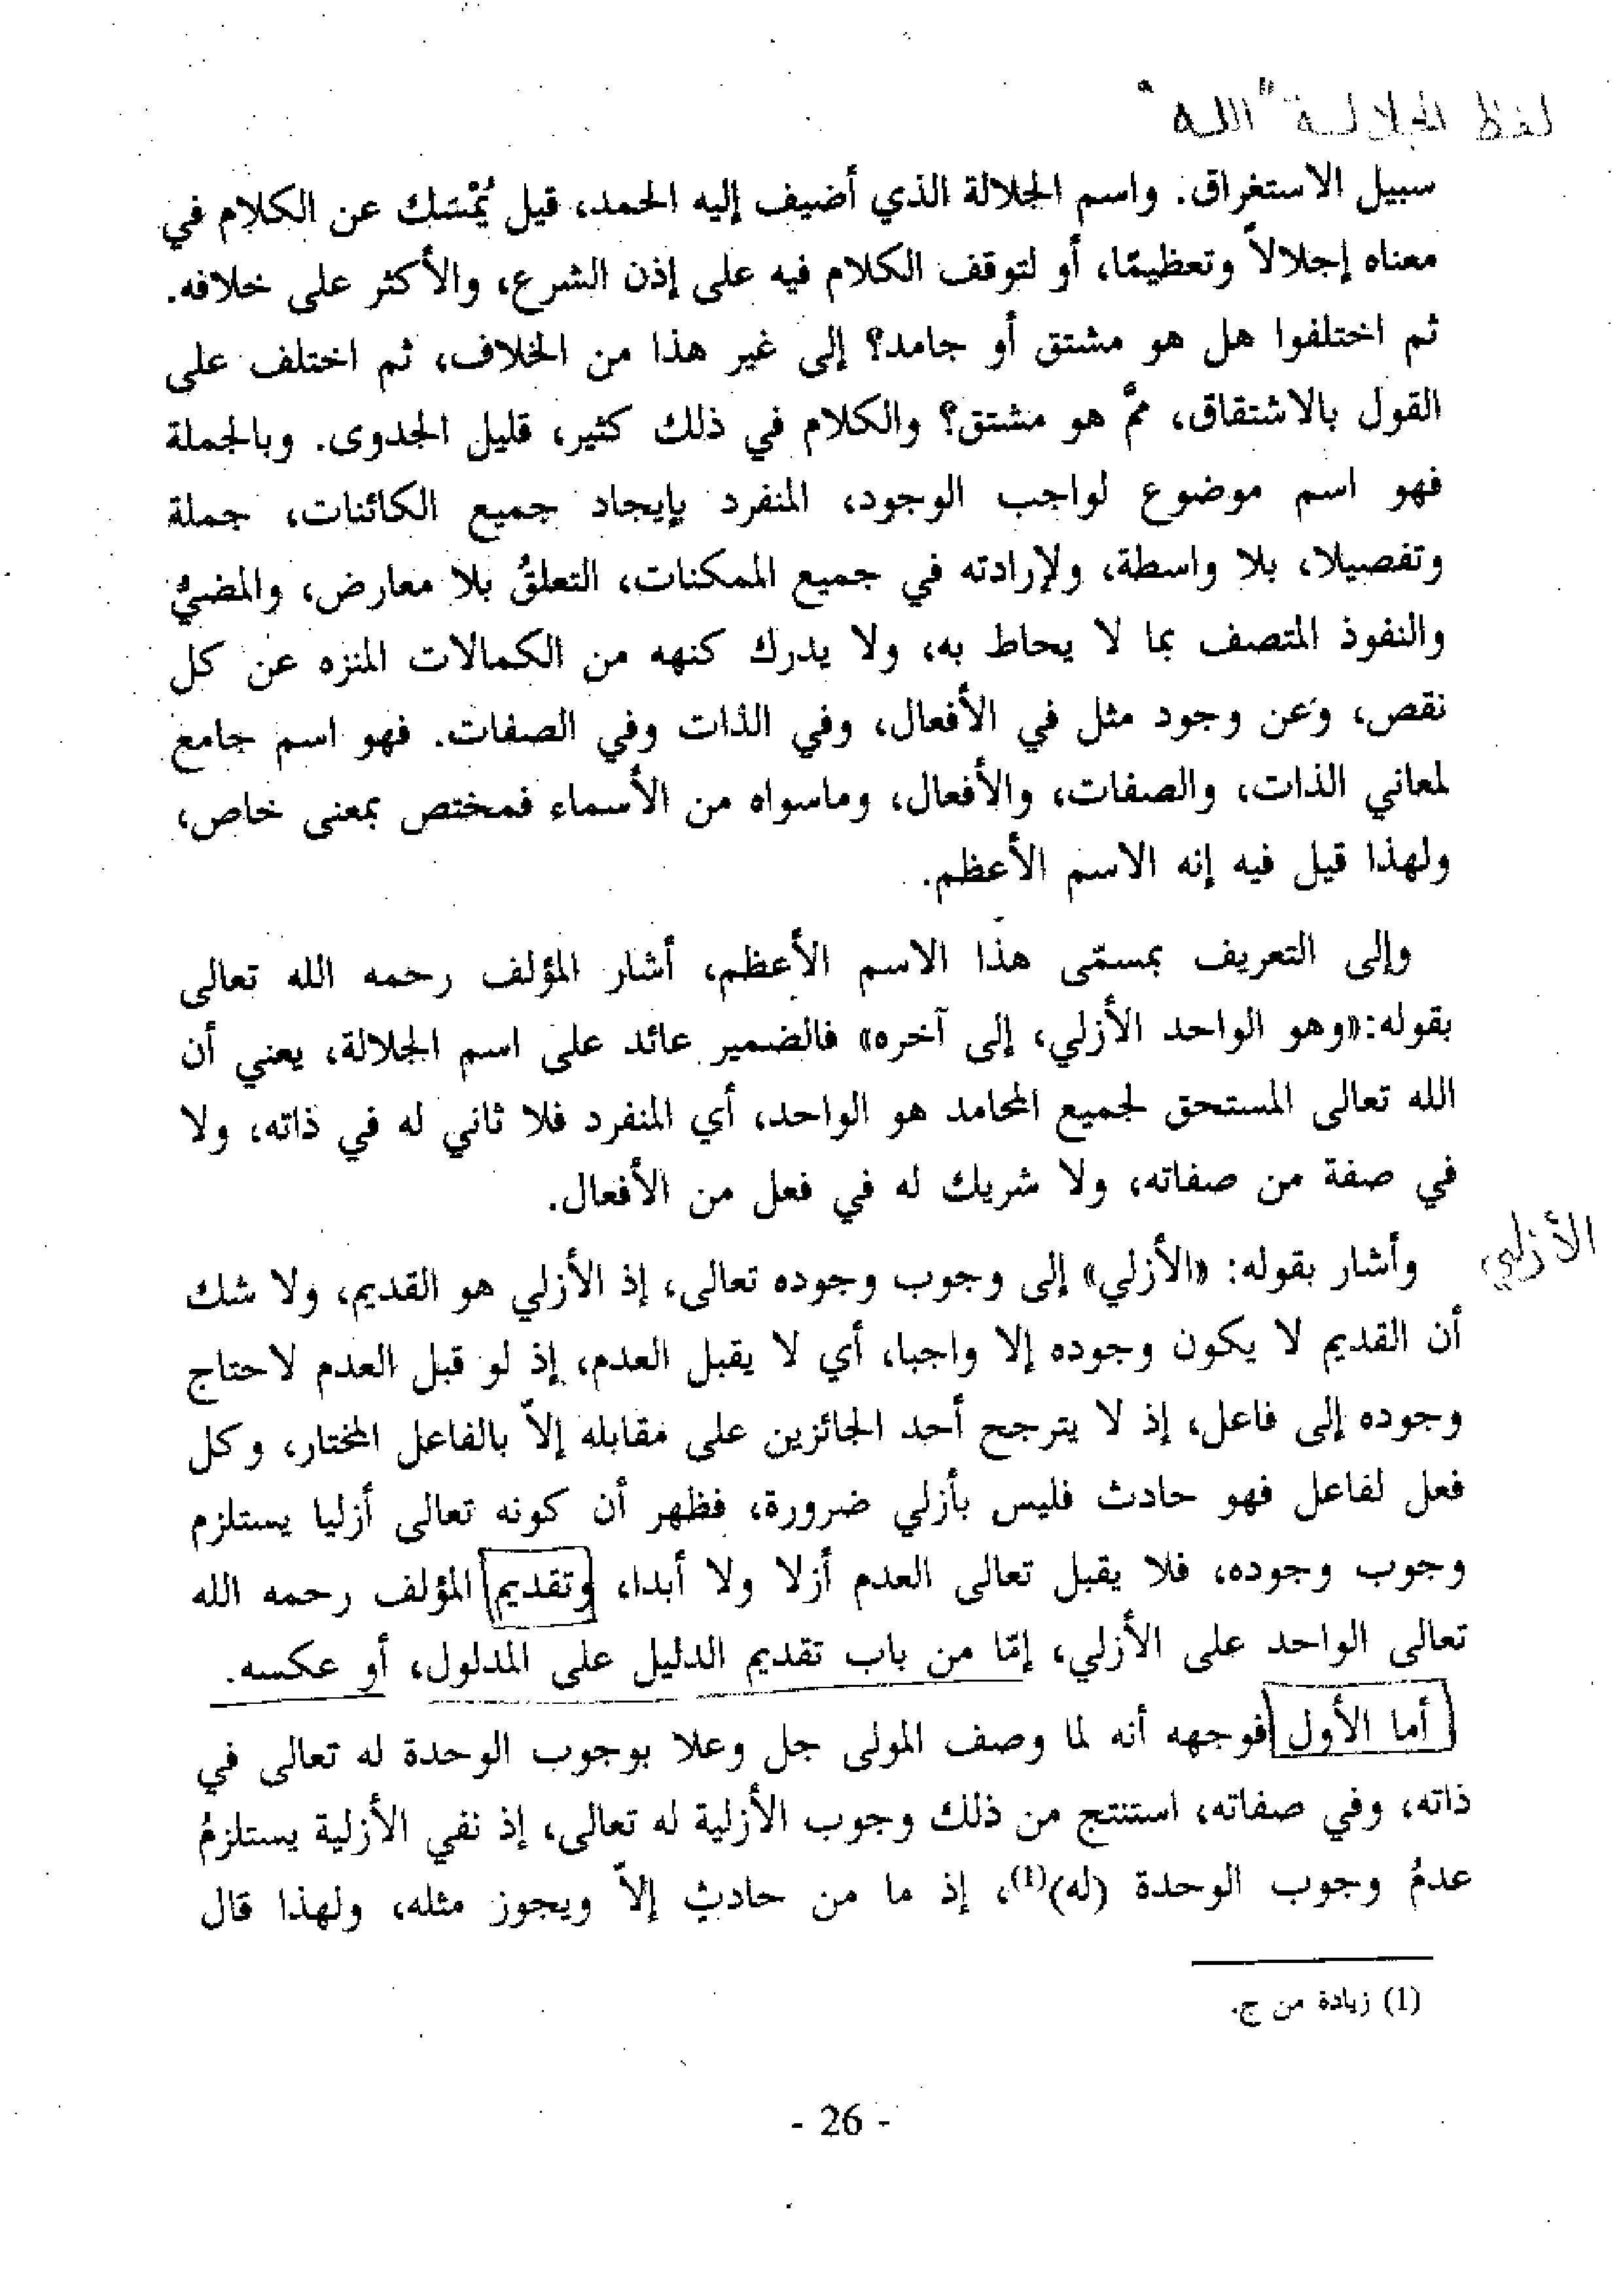 لفظ الجلالة "الله"
سبيل الاستغراق. واسم الجلالة الذي أضيف إليه الحمد، قيل يُمْسَك عن الكلام في
معناه إجلالاً وتعظيمًا، أو لتوقف الكلام فيه على إذن الشرع، والأكثر على خلافه.
ثم اختلفوا هل هو مشتق أو جامد؟ إلى غير هذا من الخلاف، ثم اختلف على
القول بالاشتقاق، ممَّ هو مشتق؟ والكلام في ذلك كثير، قليل الجدوى. وبالجملة
فهو اسم موضوع لواجب الوجود، المنفرد بإيجاد جميع الكائنات، جملة
وتفصيلا، بلا واسطة، ولإرادته في جميع الممكنات، التعلقُ بلا معارض، والمضيُّ
والنفوذ المتصف بما لا يحاط به، ولا يدرك كنهه من الكمالات المنزه عن كل
نقص، وعن وجود مثل في الأفعال، وفي الذات وفي الصفات. فهو اسم جامع
لمعاني الذات، والصفات، والأفعال، وماسواه من الأسماء فمختص بمعنى خاص،
ولهذا قيل فيه إنه الاسم الأعظم.
وإلى التعريف بمسمّى هذا الاسم الأعظم، أشار المؤلف رحمه الله تعالى
بقوله:«وهو الواحد الأزلي، إلى آخره» فالضمير عائد على اسم الجلالة، يعني أن
الله تعالى المستحق لجميع المحامد هو الواحد، أي المنفرد فلا ثاني له في ذاته، ولا
في صفة من صفاته، ولا شريك له في فعل من الأفعال.
الأزلي
وأشار بقوله: «الأزلي» إلى وجوب وجوده تعالى، إذ الأزلي هو القديم، ولا شك
أن القديم لا يكون وجوده إلا واجبا، أي لا يقبل العدم، إذ لو قبل العدم لاحتاج
وجوده إلى فاعل، إذ لا يترجح أحد الجائزين على مقابله إلاّ بالفاعل المختار، وكل
فعل لفاعل فهو حادث فليس بأزلي ضرورة، فظهر أن كونه تعالى أزليا يستلزم
وجوب وجوده، فلا يقبل تعالى العدم أزلا ولا أبدا، وتقديم المؤلف رحمه الله
تعالى الواحد على الأزلي، إمّا من باب تقديم الدليل على المدلول، أو عكسه.
أما الأول فوجهه أنه لما وصف المولى جل وعلا بوجوب الوحدة له تعالى في
ذاته، وفي صفاته، استنتج من ذلك وجوب الأزلية له تعالى، إذ نفي الأزلية يستلزمُ
عدمُ وجوب الوحدة (له)(1)، إذ ما من حادثٍ إلاّ ويجوز مثله، ولهذا قال
(1) زيادة من ج.
- 26 -